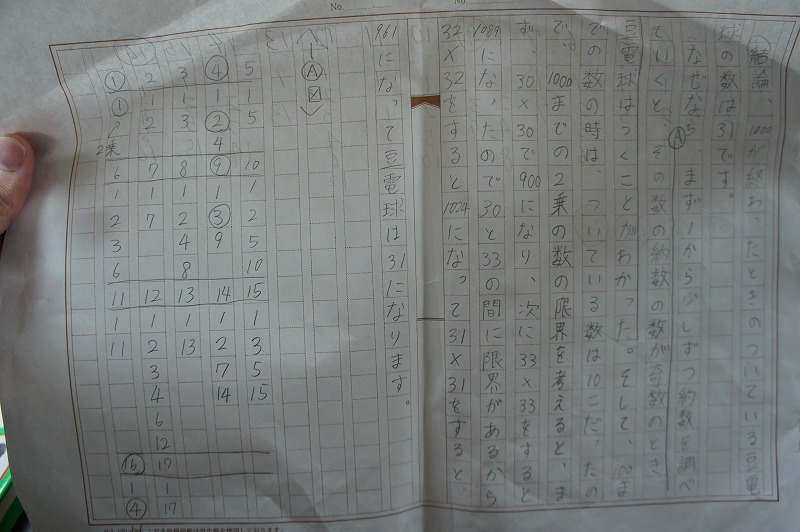 結論、1000が終わったときのついている豆電
球の数は31です。
なぜなら、まず1から少しずつ約数を調べ
Ⓐ
ていくと、その数の約数の数が奇数のとき
豆電球はつくことがわかった。そして、100ま
での数の時は、ついている数は10こだったの
で、1000までの2乗の数の限界を考えると、ま
ず、30×30で900になり、次に33×33をすると
1089になったので30と33の間に限界があるから
32×32をすると1024になって31×31をすると、
961になって豆電球は31になります。
Ⓐ図
① 2 3 ④ 5
① 1 1 1 1
2 3 ② 5
4
2乗
6 7 8 ⑨ 10
1 1 1 1 1
2 7 2 ③ 2
3 4 9 5
6 8 10
11 12 13 14 15
1 1 1 1 1
11 2 13 2 3
3 7 5
4 14 15
6
12
⑯ 17
1 1
④ 17
No.
No.